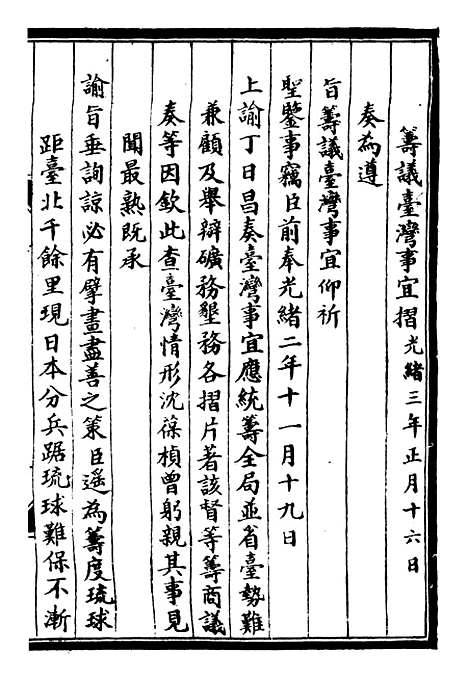 籌議臺灣事宜摺光緒三年正月十六日
奏為遵
旨籌議臺灣事宜仰祈
聖鑒事竊臣前奉光緒二年十一月十九日
上諭丁日昌奏臺灣事宜應統籌全局並省臺勢難
兼顧及舉辦礦務墾務各摺片著該督等籌商議
奏等因欽此查臺灣情形沈葆楨曾躬親其事見
聞最熟既承
諭旨垂詢諒必有擘畫盡善之策臣遙為籌度琉球
距臺北千餘里現日本分兵踞琉球難保不漸